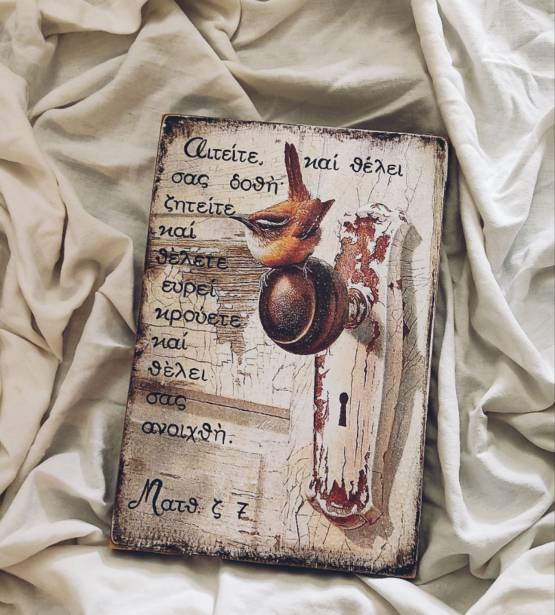 Αιτείτε, καί θέλει
σας δοθή·
ζητείτε
καί
θέλετε
ευρεί,
κρούετε
καί
θέλει
σας
ανοιχθή.
Ματθ. ζ 7